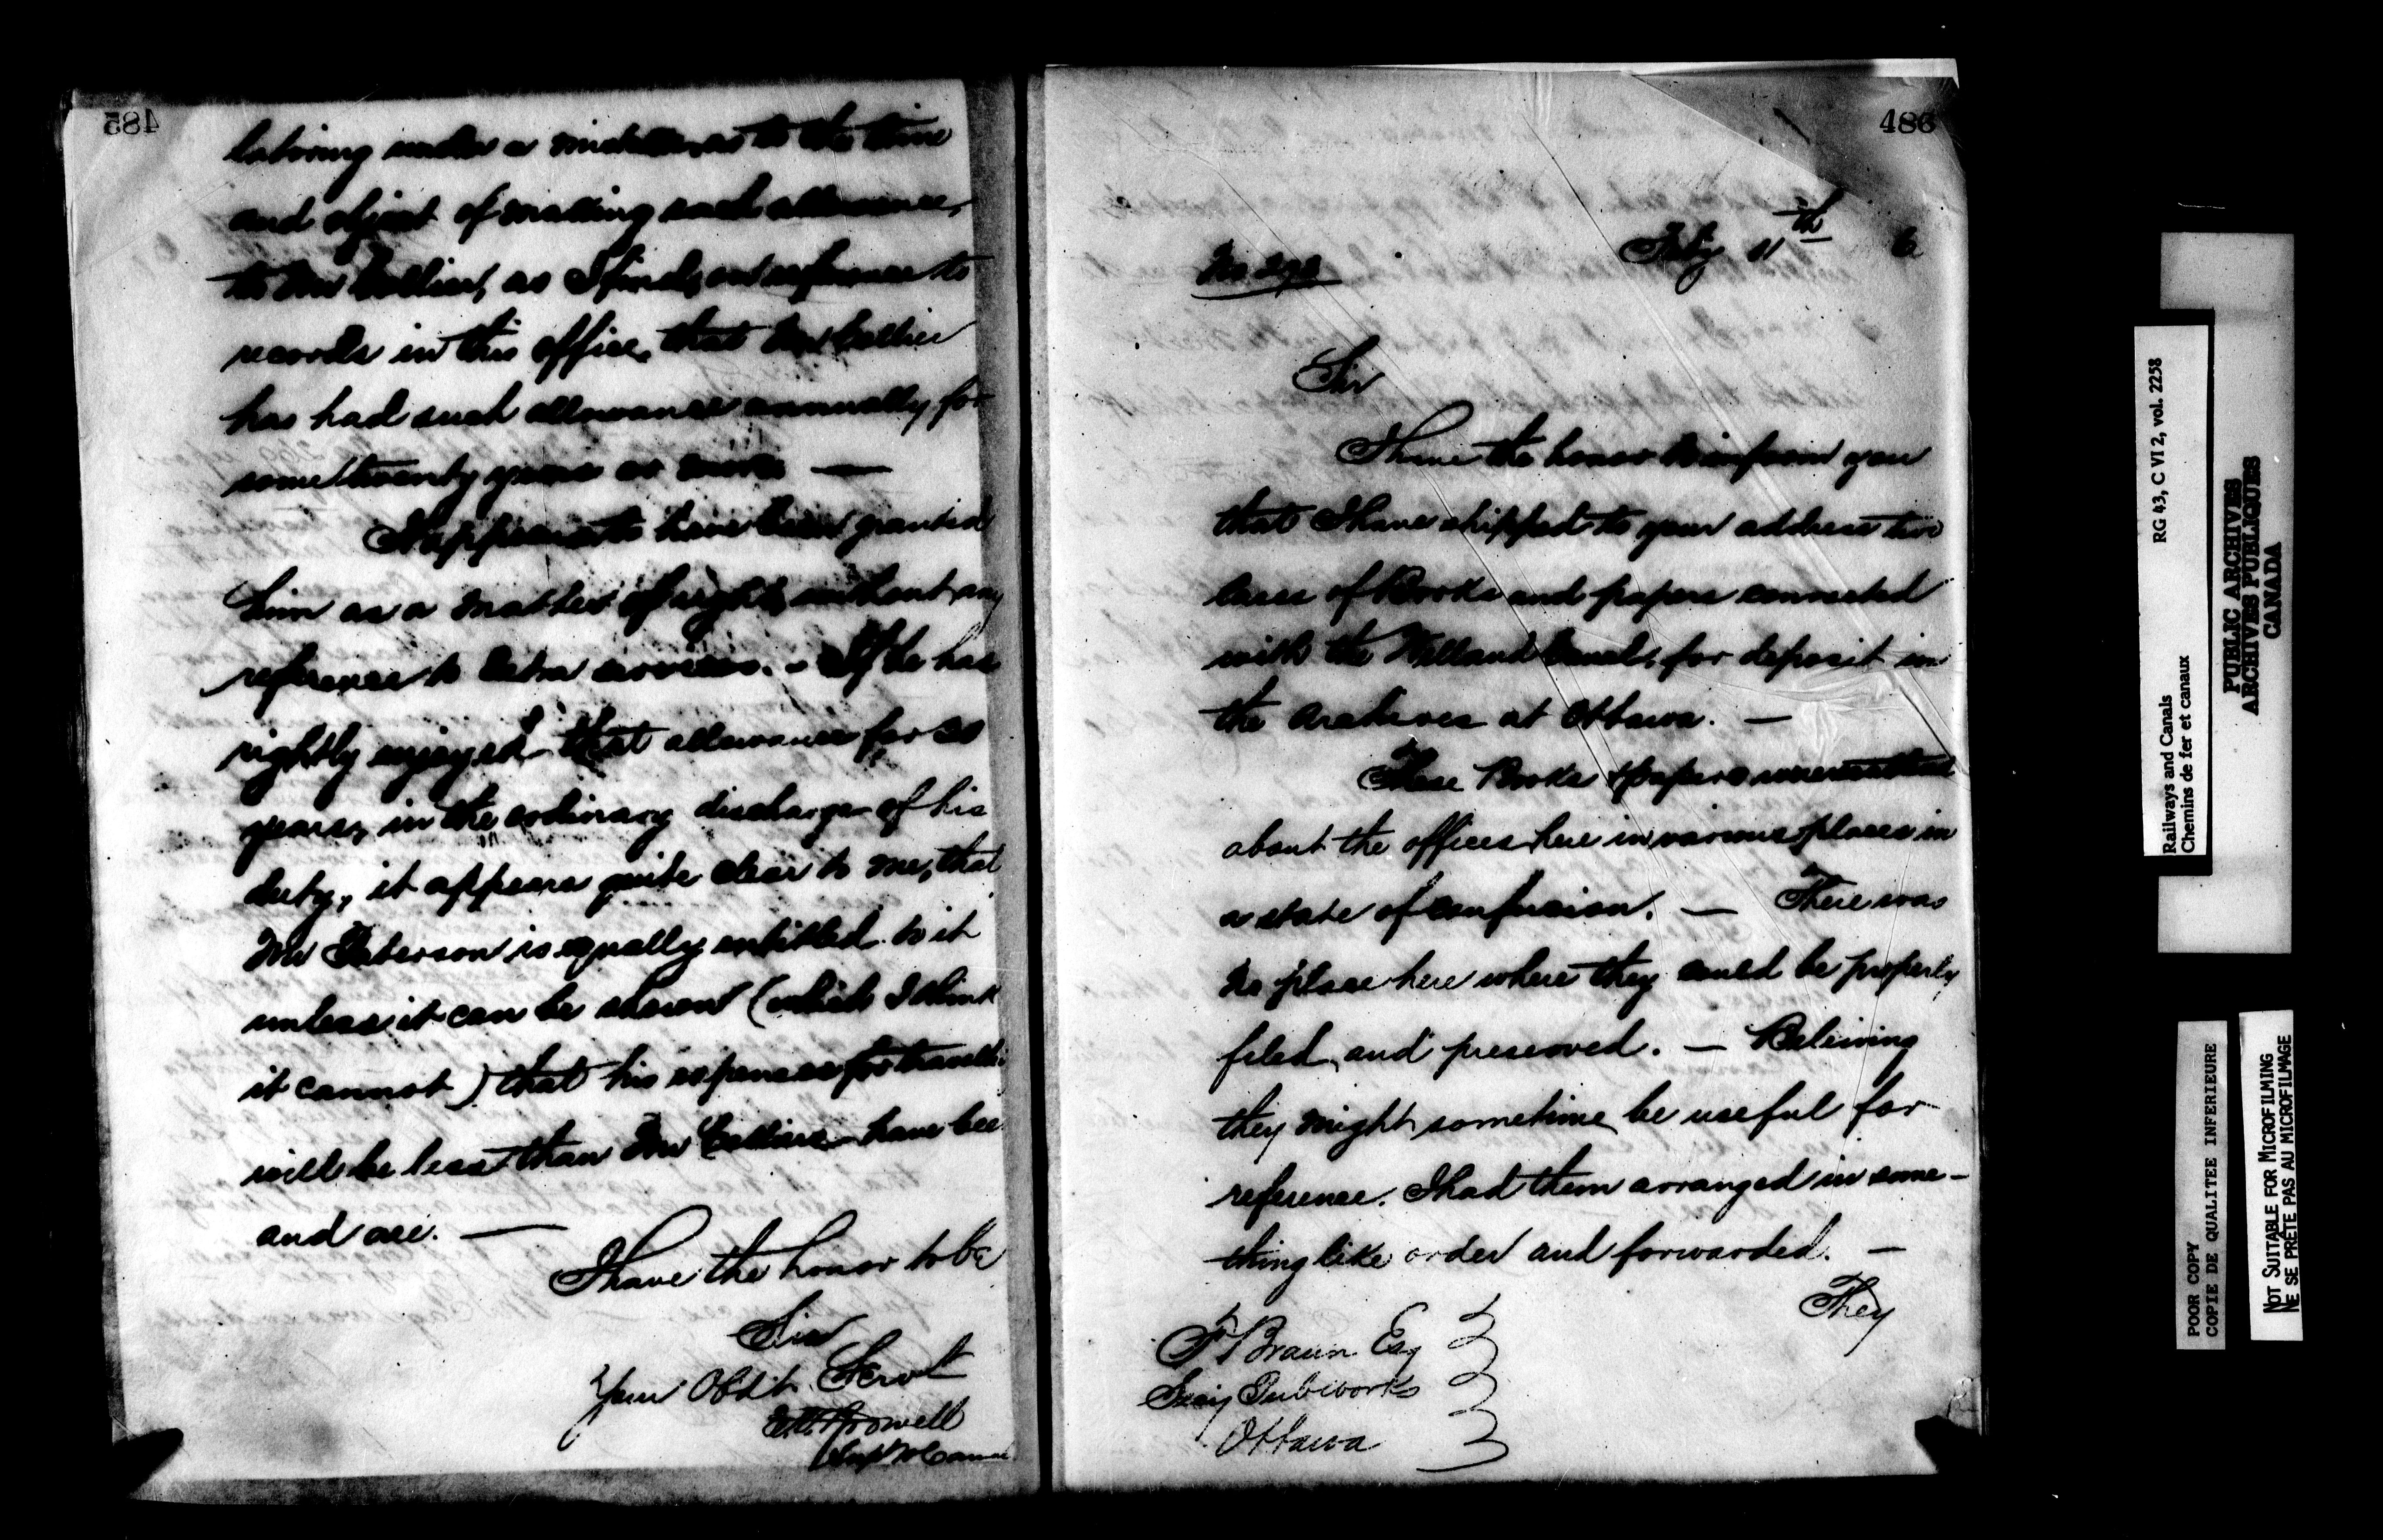 485
laboring under a mistake, as to the time
and object of making such allowance,
to Mr Collier, as I find, on reference to
records in this office, that Mr Collier
has had such allowance annually for
some twenty years or more —
It appears to have been granted
him as a matter of right, without any
reference to extra services. - If he has
rightly enjoyed that allowance for 20
years, in the ordinary discharge of his
duty, it appears quite clear to me, that
Mr Paterson is equally entitled to it
unless it can be shown (which I think
it cannot) that his expenses for travelli
will be less than Mr Colliers have bee
and are. —
I have the honor to be
Sir
Your Obdt Servt
Supt W Canal
486
Feby 11th 6
Sir
I have the honor to inform you
that I have shipped to your address two
cases of Books and papers connected
with the Welland Canal, for deposit in
the Archives at Ottawa. —
These Books & papers were
about the offices here in various places in
a state of confusion. — There was
no place here where they could be properly
filed and preserved. — Believing
they might sometime be useful for
reference. I had them arranged in some-
thing like order and forwarded. —
They
F Braun Esq
Secy Pub works
Ottawa
Railways and Canals RG 43, C VI 2, vol. 2258
Chemins de fer et canaux
PUBLIC ARCHIVES
ARCHIVES PUBLIQUES
CANADA
POOR COPY
COPIE DE QUALITEE INFERIEURE
NOT SUITABLE FOR MICROFILMING
NE SE PRÊTE PAS AU MICROFILMAGE